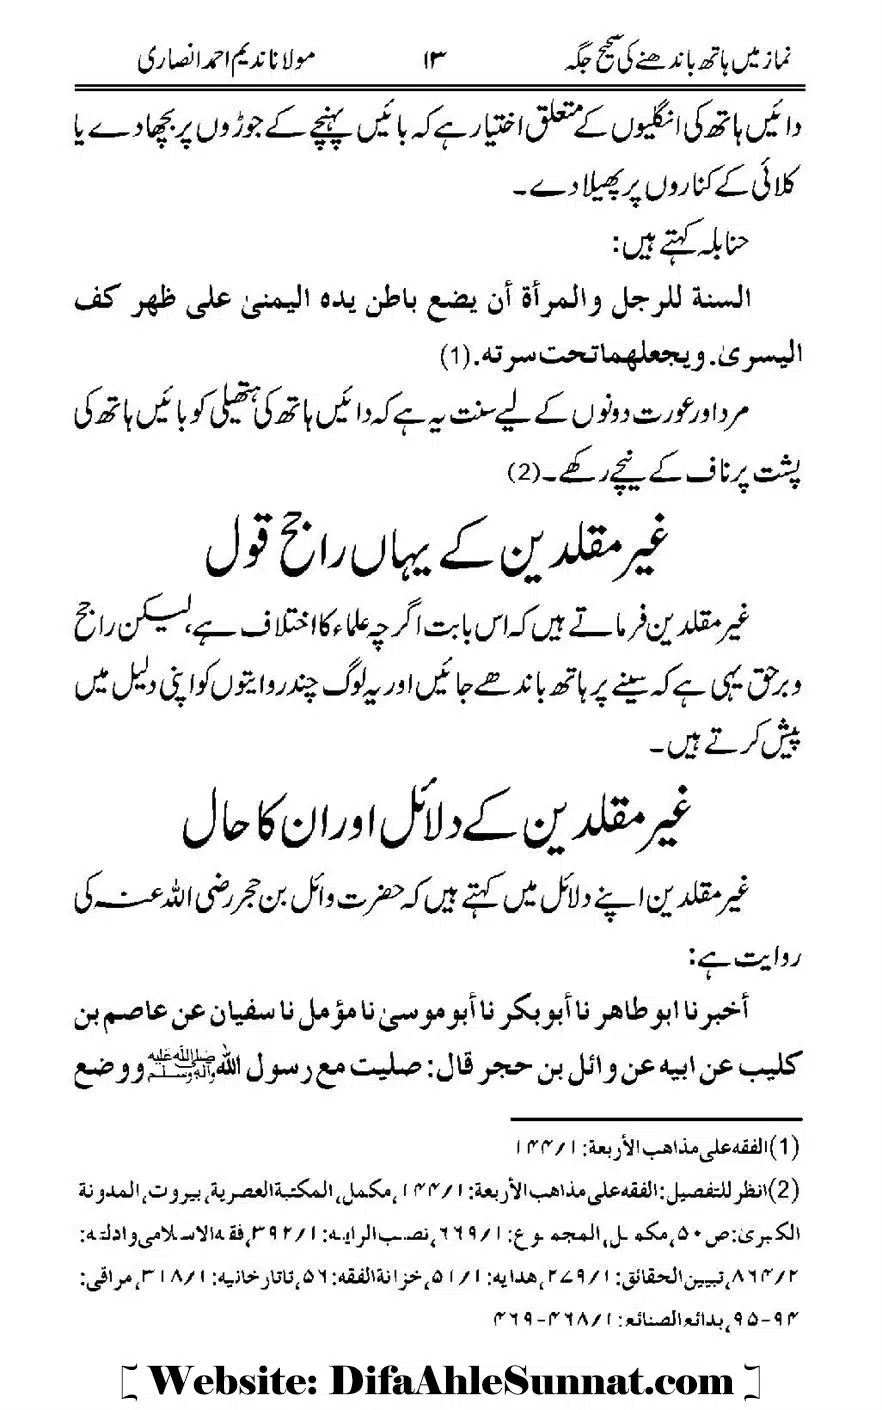 نماز میں ہاتھ باندھنے کی صحیح جگہ ۱۳ مولانا ندیم احمد انصاری
دائیں ہاتھ کی انگلیوں کے متعلق اختیار ہے کہ بائیں پہنچے کے جوڑوں پر بچھا دے یا
کلائی کے کناروں پر پھیلا دے۔
حنابلہ کہتے ہیں:
السنة للرجل والمرأة أن يضع باطن يده اليمنىٰ على ظهر كف
اليسرىٰ. ويجعلهما تحت سرته. (1)
مرد اور عورت دونوں کے لیے سنت یہ ہے کہ دائیں ہاتھ کی ہتھیلی کو بائیں ہاتھ کی
پشت پر ناف کے نیچے رکھے۔ (2)
غیر مقلدین کے یہاں راجح قول
غیر مقلدین فرماتے ہیں کہ اس بابت اگرچہ علماء کا اختلاف ہے، لیکن راجح
و برحق یہی ہے کہ سینے پر ہاتھ باندھے جائیں اور یہ لوگ چند روایتوں کو اپنی دلیل میں
پیش کرتے ہیں۔
غیر مقلدین کے دلائل اور ان کا حال
غیر مقلدین اپنے دلائل میں کہتے ہیں کہ حضرت وائل بن حجر رضی اللہ عنہ کی
روایت ہے:
أخبرنا ابو طاهر نا أبو بكر نا أبو موسىٰ نا مؤمل نا سفيان عن عاصم بن
كليب عن ابيه عن وائل بن حجر قال: صليت مع رسول الله ﷺ ووضع
(1) الفقه على مذاهب الأربعة: ۱/۱۴۴
(2) انظر للتفصيل: الفقه على مذاهب الأربعة: ۱/۱۴۴، مكمل، المكتبة العصرية، بيروت، المدونة
الكبرىٰ: ص۵۰، مكمل، المجموع: ۱/۶۶۹، نصب الرايه: ۱/۳۹۲، فقه الاسلامى وادلته:
۲/۸۶۴، تبيين الحقائق: ۱/۲۷۹، هدايه: ۱/۵۱، خزانة الفقه: ۵۶، تاتارخانيه: ۱/۳۱۸، مراقى:
۹۴-۹۵، بدائع الصنائع: ۱/۴۶۸-۴۶۹
[ Website: DifaAhleSunnat.com ]